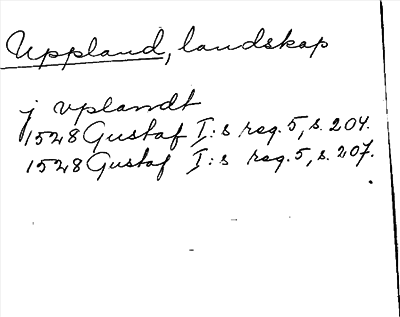 Uppland, landskap
j vplandt
1528 Gustaf I:s reg. 5, s. 204.
1528 Gustaf I:s reg. 5, s. 207.